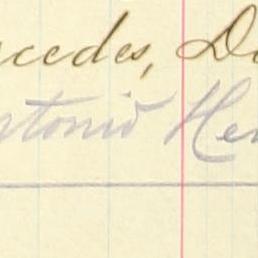 rcedes, Do
ntonio Her